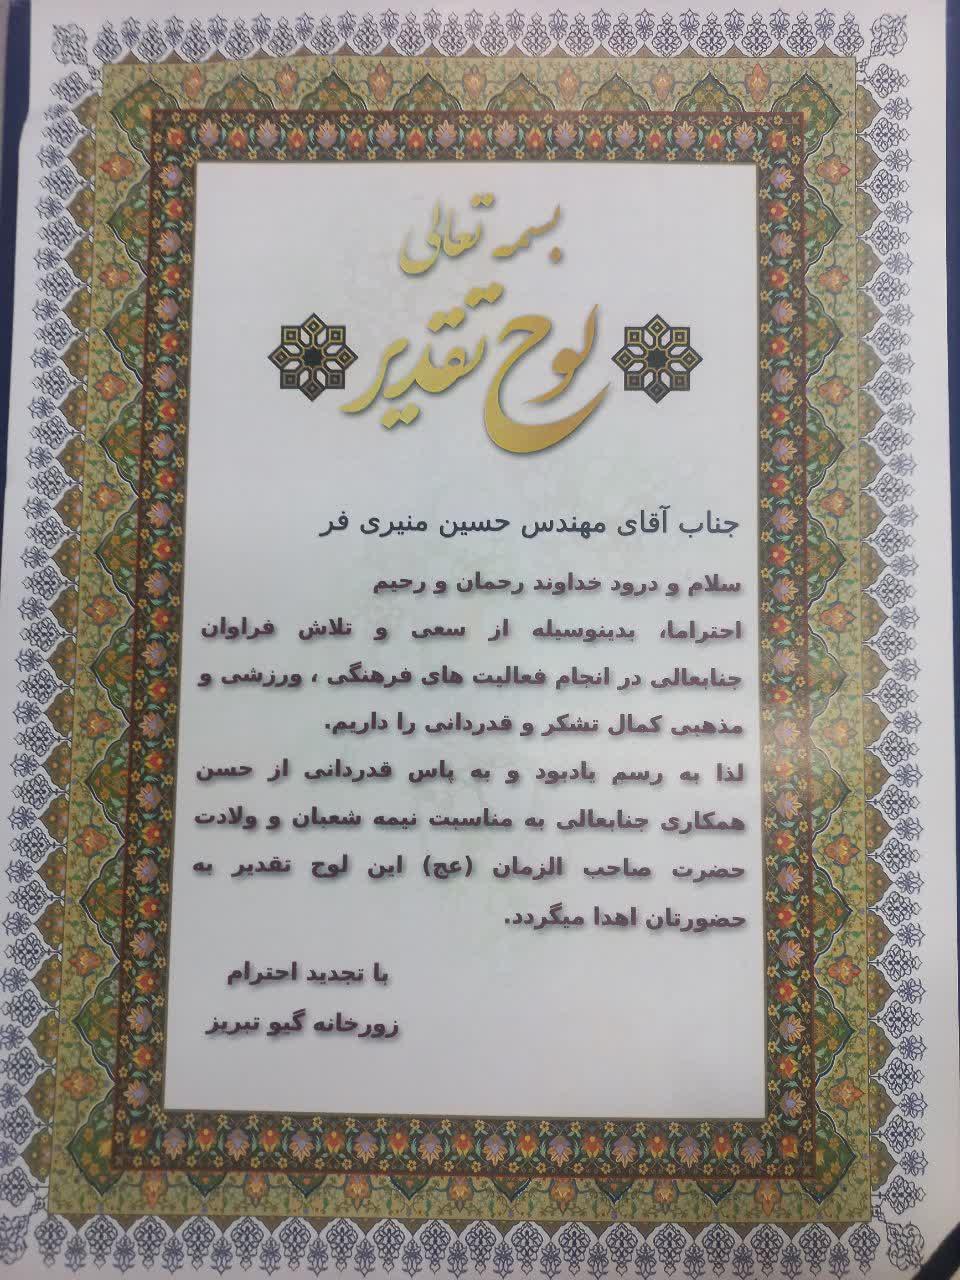 بسمه تعالی
لوح تقدیر
جناب آقای مهندس حسین منیری فر
سلام و درود خداوند رحمان و رحیم
احتراما، بدینوسیله از سعی و تلاش فراوان
جنابعالی در انجام فعالیت های فرهنگی ، ورزشی و
مذهبی کمال تشکر و قدردانی را داریم.
لذا به رسم یادبود و به پاس قدردانی از حسن
همکاری جنابعالی به مناسبت نیمه شعبان و ولادت
حضرت صاحب الزمان (عج) این لوح تقدیر به
حضورتان اهدا میگردد.
با تجدید احترام
زورخانه گیو تبریز